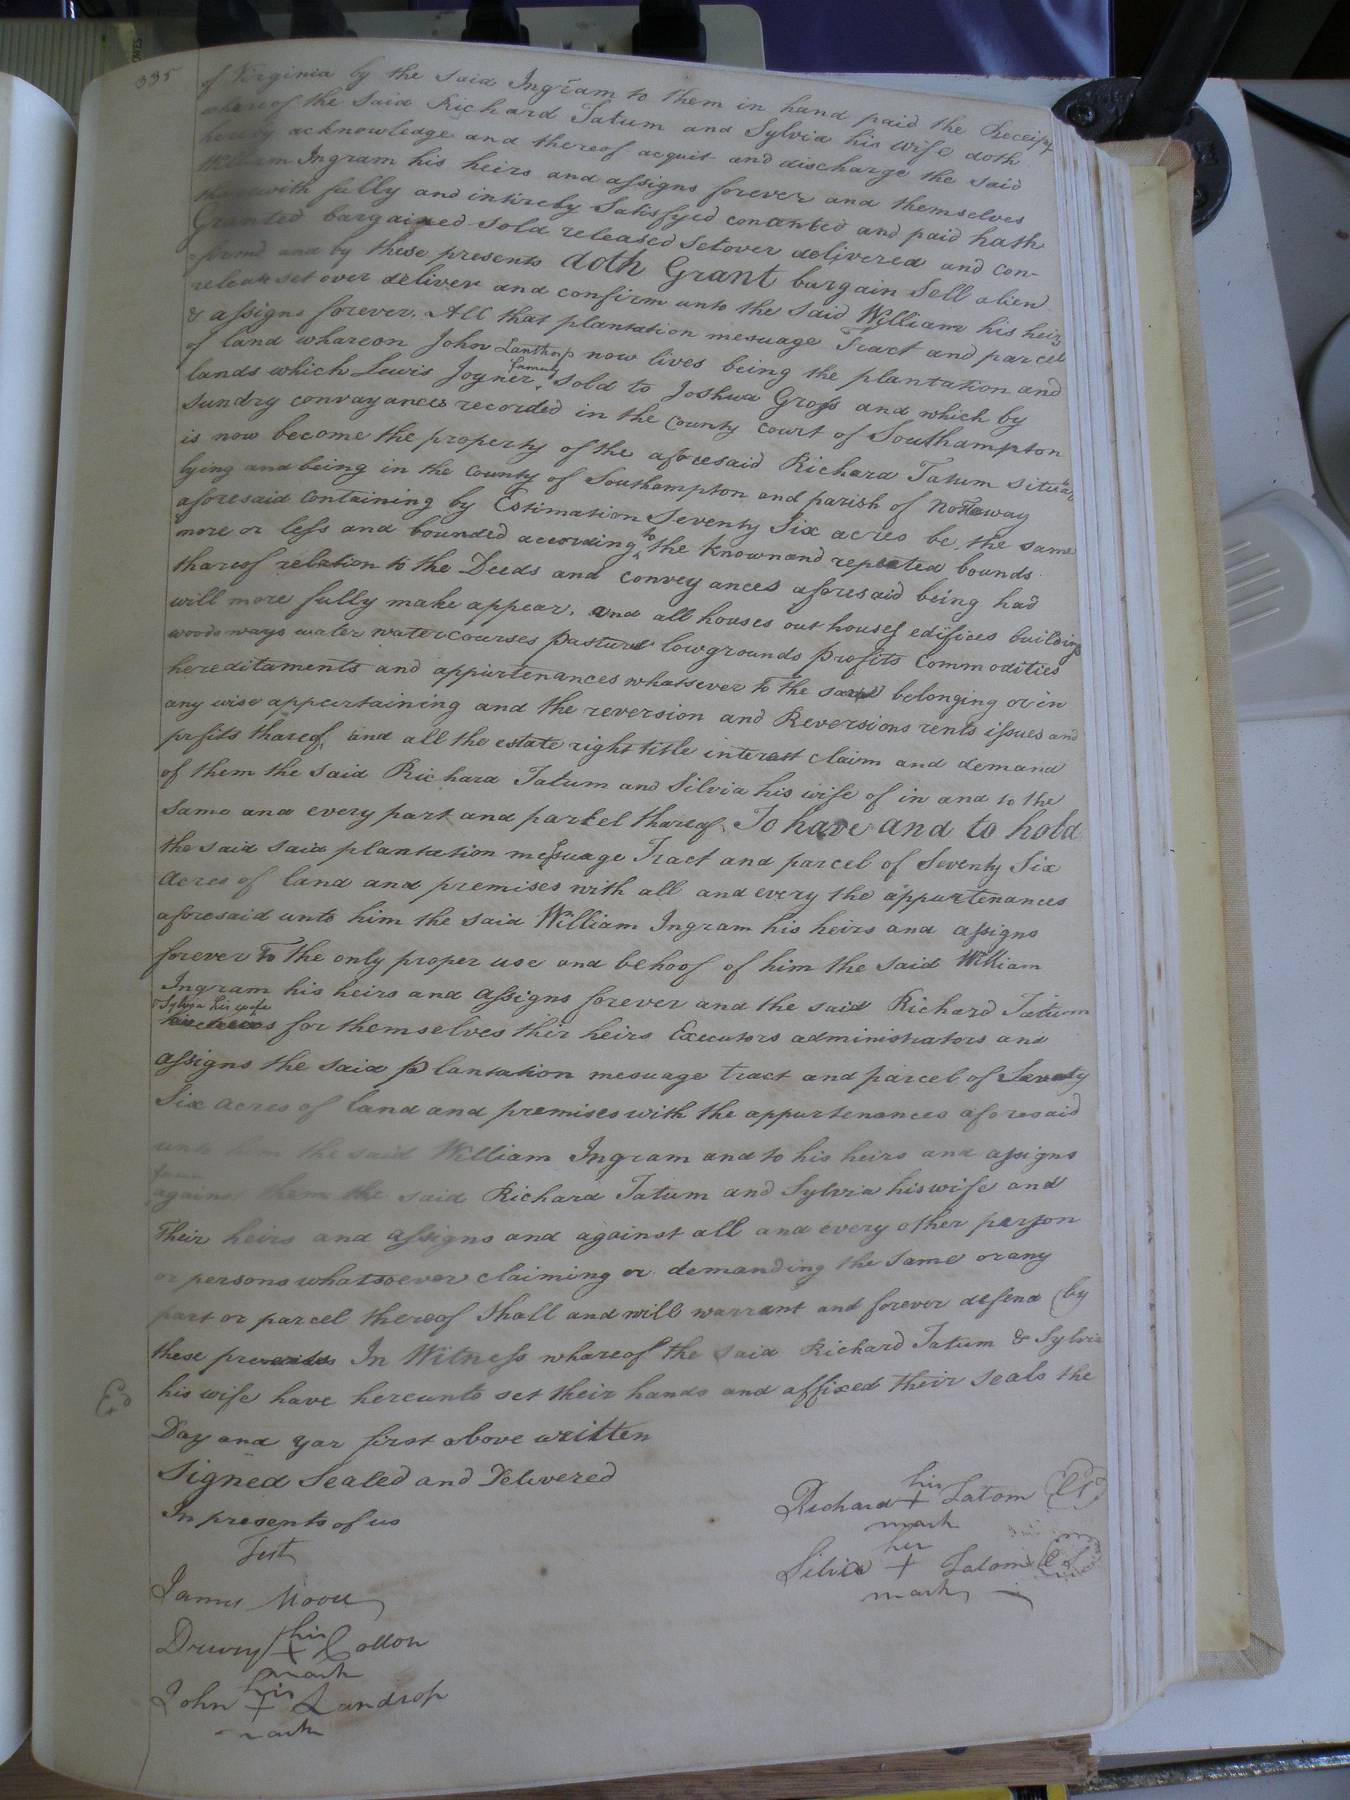 335
of Virginia by the said Ingram to them in hand paid the Receipt
whereof the said Richard Tatum and Sylvia his wife doth
hereby acknowledge and thereof acquit and discharge the said
William Ingram his heirs and assigns forever and themselves
therewith fully and intirely Satisfyed contented and paid hath
Granted bargained sold released setover delivered and con-
firmd and by these presents doth Grant bargain Sell alien
release set over deliver and confirm unto the said William his heirs
& assigns forever. All that plantation mesuage Tract and parcel
of land whareon John Lanthrop now lives being the plantation and
lands which Lewis Joyner sold to Joshua Gross and which by
sundry convayances recorded in the County Court of Southampton
is now become the property of the aforesaid Richard Tatum situate
lying and being in the County of Southampton and parish of Nottoway
aforesaid Containing by Estimation Seventy Six acres be the same
more or less and bounded according to the known and repeated bounds
thareof relation to the Deeds and conveyances aforesaid being had
will more fully make appear. and all houses out houses edifices buildings
woods ways water watercourses pasture lowgrounds profits Commodities
hereditaments and appurtenances whatsever to the said belonging or in
any wise appertaining and the reversion and Reversions rents issues and
profits thareof, and all the estate right title interest claim and demand
of them the said Richard Tatum and Silvia his wife of in and to the
same and every part and parcel thareof To have and to hold
the said said plantation messuage Tract and parcel of Seventy Six
Acres of land and premises with all and every the appurtenances
aforesaid unto him the said William Ingram his heirs and assigns
forever To the only proper use and behoof of him the said William
Ingram his heirs and assigns forever and the said Richard Tatum
& Sylvia his wife
for themselves thir heirs Executors administrators and
assigns the said plantation mesuage tract and parcel of Seventy
Six acres of land and premises with the appurtenances aforesaid
unto him the said William Ingram and to his heirs and assigns
against them the said Richard Tatum and Sylvia his wife and
Their heirs and assigns and against all and every other person
or persons whatsoever claiming or demanding the same or any
part or parcel thereof Shall and will warrant and forever defend (by
these presents In Witness whareof the said Richard Tatum & Sylvia
his wife have hereunto set their hands and affixed their seals the
Day and yar first above written
Signed Sealed and Delivered
In presents of us
Test
Richard his + mark Tatom (LS)
Silvia her + mark Tatom (LS)
James Moore
Drury his + mark Cotton
John his + mark Landrop
Ed